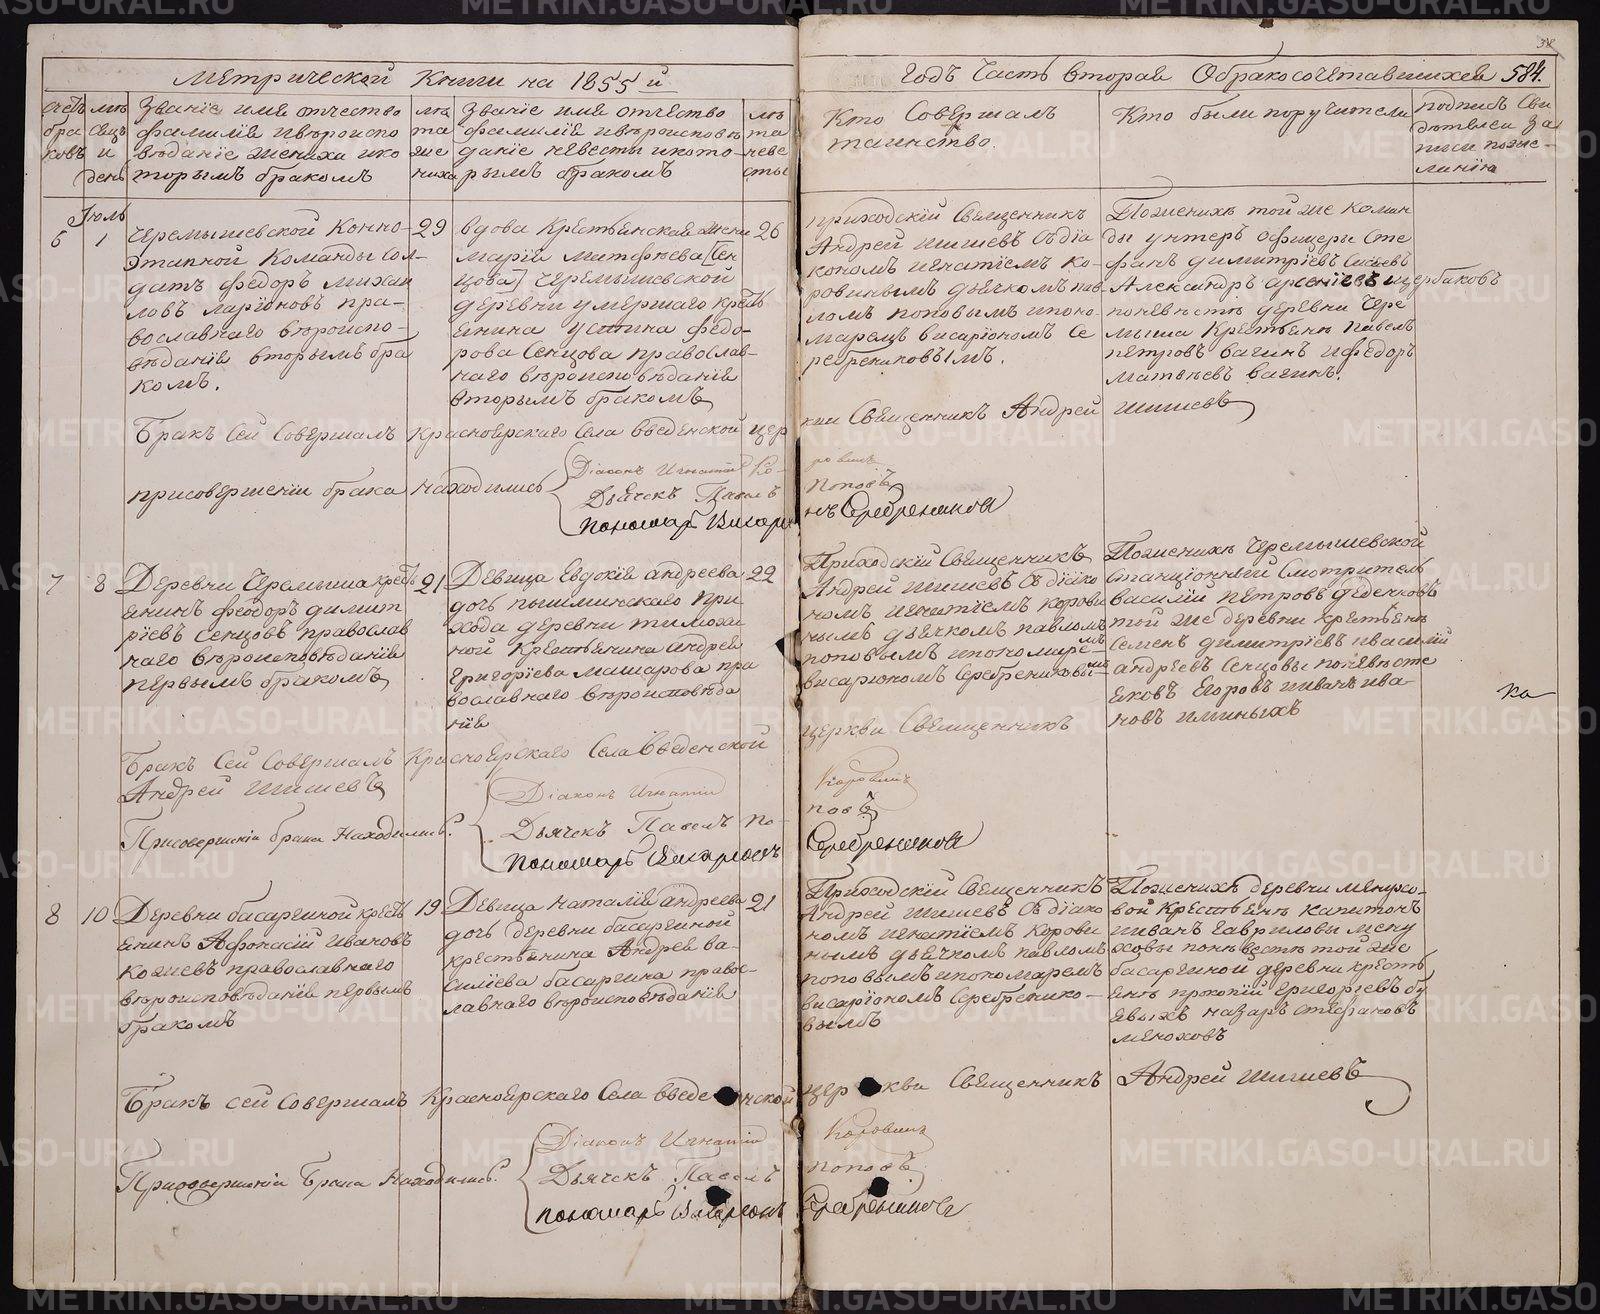 Метрической Книги на 1855 й
годъ Часть вторая О бракосочетавшихся 584.
счетъ браковъ
мѣсяцъ и день
Званіе имя отчество
фамилія и вѣроиспо
вѣданіе жениха и ко
торымъ бракомъ
лѣта жениха
Званіе имя отчество
фамилія и вѣроисповѣ
даніе невесты и кото-
рымъ бракомъ
лѣта невесты
Кто Совершалъ
таинство.
Кто были поручители
подписъ Сви
дѣтелей За
писи по же-
ланію
6
Іюль
1
Черемышевской Конно-
Этапной Команды Сол-
датъ Федоръ Михаи
ловъ Ларіоновъ пра-
вославнаго вѣроиспо-
вѣданія вторымъ бра
комъ.
29
вдова Крестьянская жена
Марія Матфѣева [Сен
цова] Черемышевской
деревни умершаго крестъ
янина Устина Федо-
рова Сенцова православ-
наго вѣроисповѣданія
вторымъ бракомъ
26
приходскій Священникъ
Андрей Шишевъ Съ діа
кономъ Игнатіемъ Ко-
ровинымъ дьячкомъ пав-
ломъ поповымъ и поно-
маремъ висаріономъ Се
ребрениковымъ.
По женихѣ той же коман
ды унтеръ офицеры Сте
фанъ димитріевъ
Александръ арсеніевъ щербаковъ
по невѣстѣ деревни Чере
мыша Крестьяне павелъ
петровъ вагинъ и федоръ
матвѣевъ вагинъ.
Бракъ Сей Совершалъ Красноярскаго Села Введенской цер
кви Священникъ Андрей Шишевъ
при совершеніи брака находились
Діаконъ Игнатій Ко-
ровинъ
Дьячекъ Павелъ
Поповъ
Пономарь Висаріо
нъ Серебрениковъ
7
8
Деревни Черемыша крестъ
янинъ Феодоръ димит
ріевъ Сенцовъ православ
наго вѣроисповѣданія
первымъ бракомъ
21
Девица Евдокія андреева
дочь пышминскаго при
хода деревни тимоха
ной крестьянина андрея
Григоріева машарова пра
вославнаго вѣроисповѣда
нія
22
Приходскій Священникъ
Андрей Шишевъ Съ діако
номъ игнатіемъ корови
нымъ дьячкомъ павломъ
поповымъ и пономаре-
мъ
висаріономъ Серебрениковы-
мъ
По женихѣ Черемышевской
Станціонный Смотритель
василій петровъ деденковъ
той же деревни крестьяне
Семенъ димитріевъ и василій
андреевъ Сенцовы по невѣсте
яковъ Егоровъ и иванъ ива-
новъ иминыхъ
ка
Бракъ Сей Совершалъ Красноярскаго Села Введенской
церкви Священникъ
Андрей Шишевъ
При совершеніи брака Находились.
Діаконъ Игнатій
Коровинъ
Дьячекъ Павелъ По-
повъ
Пономарь Висаріонъ
Серебрениковъ
8
10
Деревни басаргиной крестъ
янинъ Афонасій ивановъ
кошевъ православнаго
вѣроисповѣданія первымъ
бракомъ
19
Девица Наталія андреева
дочь деревни басаргиной
крестьянина Андрея ва-
силіева басаргина правос-
лавнаго вѣроисповѣданія
21
Приходскій Священникъ
Андрей Шишевъ Съ діако
номъ игнатіемъ корови
нымъ дьячкомъ павломъ
поповымъ и пономаремъ
висаріономъ Серебренико-
вымъ
По женихѣ деревни менухо-
вой Крестьяне капитонъ
и иванъ гавриловы мену
ховы по невестѣ той же
басаргиной деревни кресть
яне прокопій григоріевъ бу
евыхъ назаръ стефановъ
менюховъ
Бракъ сей Совершалъ Красноярскаго Села Введенской
церкви Священникъ Андрей Шишевъ
При совершеніи Брака Находились.
Діаконъ Игнатій
Коровинъ
Дьячекъ Павелъ
Поповъ
Пономарь Висаріонъ
Серебрениковъ
METRIKI.GASO-URAL.RU